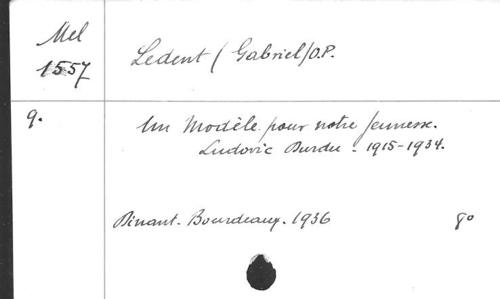 Mel
1557
Ledent (Gabriel) O.P.
9.
Un Modèle pour notre jeunesse.
Ludovic Burdu - 1915-1934.
Dinant - Bourdeaux - 1936
8°